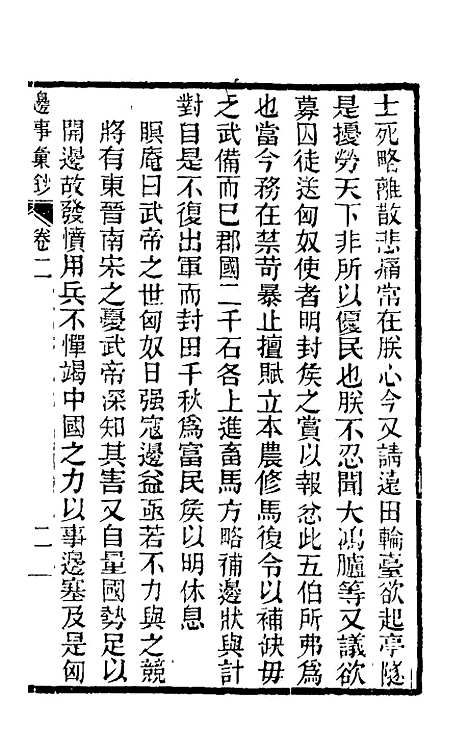 士死略離散悲痛常在朕心今又請遠田輪臺欲起亭隧
是擾勞天下非所以優民也朕不忍聞大鴻臚等又議欲
募囚徒送匈奴使者明封矦之賞以報忿此五伯所弗爲
也當今務在禁苛暴止擅賦立本農修馬復令以補缺毋
乏武備而已郡國二千石各上進畜馬方略補邊狀與計
對自是不復出軍而封田千秋爲富民矦以明休息
瞑庵曰武帝之世匈奴日强寇邊益亟若不力與之競
將有東晉南宋之憂武帝深知其害又自量國勢足以
開邊故發憤用兵不憚竭中國之力以事邊塞及是匈
邊事彙鈔 卷二 二一